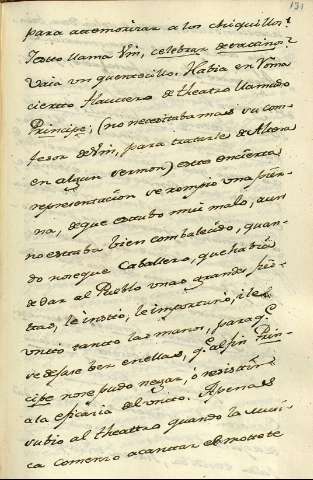 131
para atemorizar a los chiquillos?
Testo llama Vm, celebrar desatinos?
Oiga un quentecillo. Habia en Roma
cierto Flautero de theatro llamado
Principe, (no necesitaba mas su con-
fesor de Vm, para tratarle de Alteza
en algun sermon) este en cierta
representacion se rompio una pier-
na, de que estubo mui malo, aun
no estaba bien combalecido, quan-
do no se que Caballero, que habia
de dar al Pueblo unas grandes fies-
tas, le instó, le importunó, i le
untó tanto las manos, para qe.
se dejase ber en ellas, qe. al fin Prin-
cipe no se pudo negar, ó resistir
a la eficacia del unto. Apenas
subio al theattro quando la musi-
ca comenzo a cantar el motete